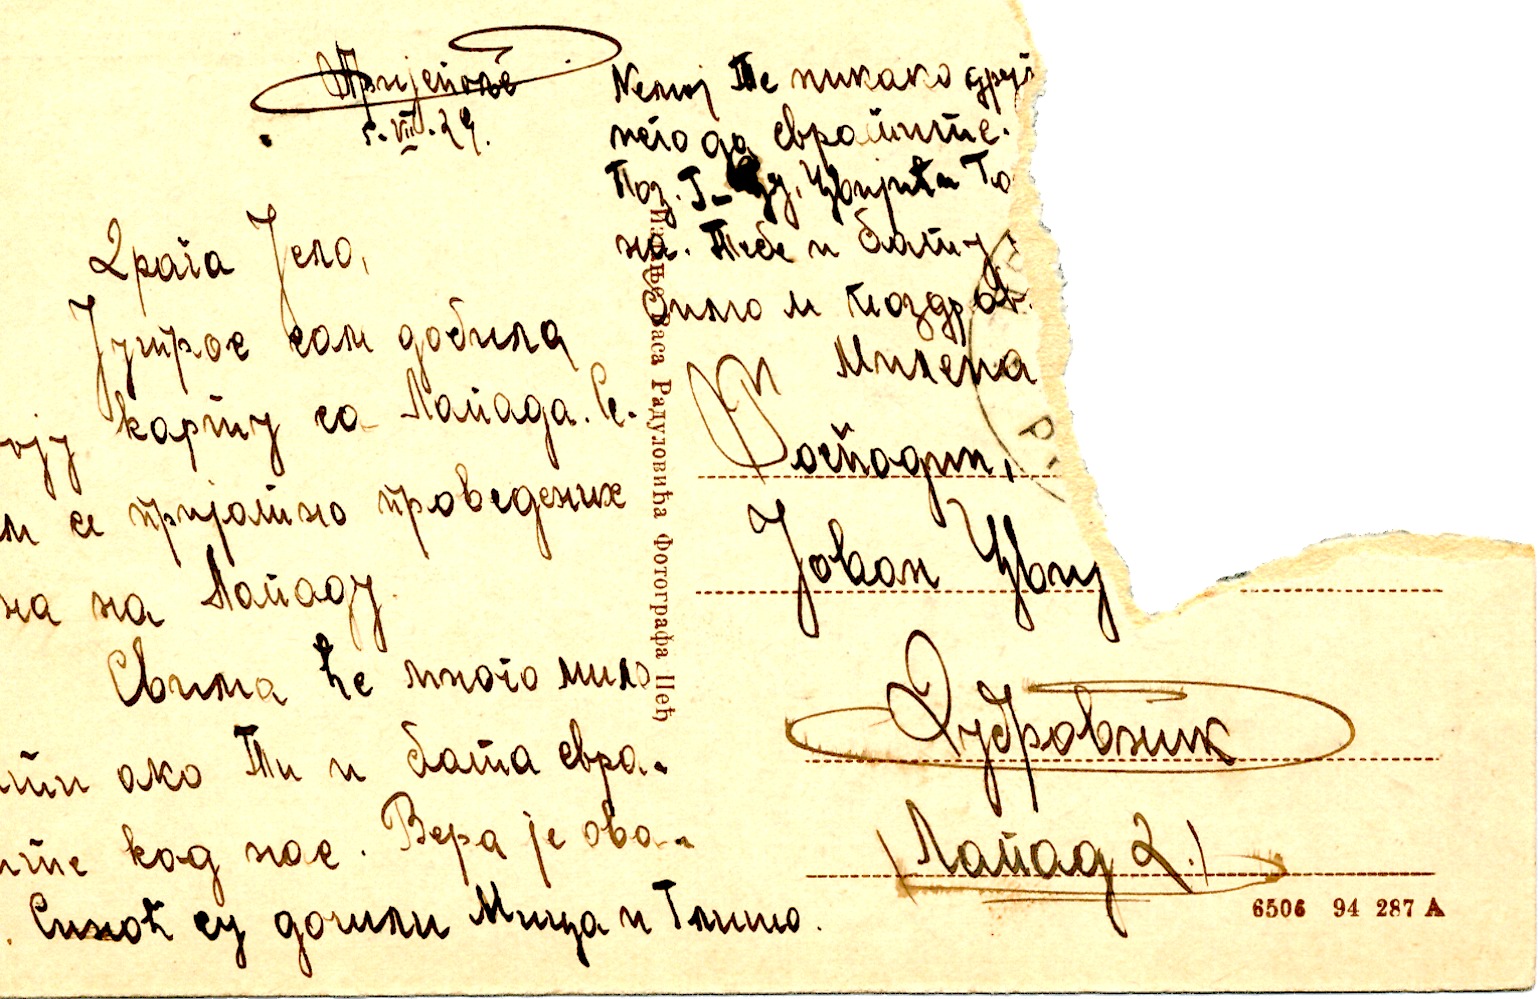 Пријепоље
5. VII. 29.
Драга Јело,
Јутрос сам добила
карту са Лапада. Се-
м се пријатно проведених
на на Лападу.
Свима ће много мило
ити ако Ти и бата свра-
ите код нас. Вера је ова-
Синоћ су дошли Мица и Тмишо.
Немој Те никако друк
него да свратите.
Поз. Г- Цвијић и Го
на. Тебе и бату
Зимо и поздрав.
Милена
Господин,
Јован Цвиј
Дубровник
Лапад 2.
Издање Васа Радуловића Фотографа Пећ
6506 94 287 A